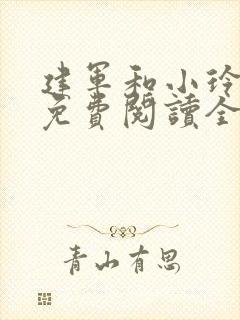 建军和小玲
免費閱讀全
青山有思